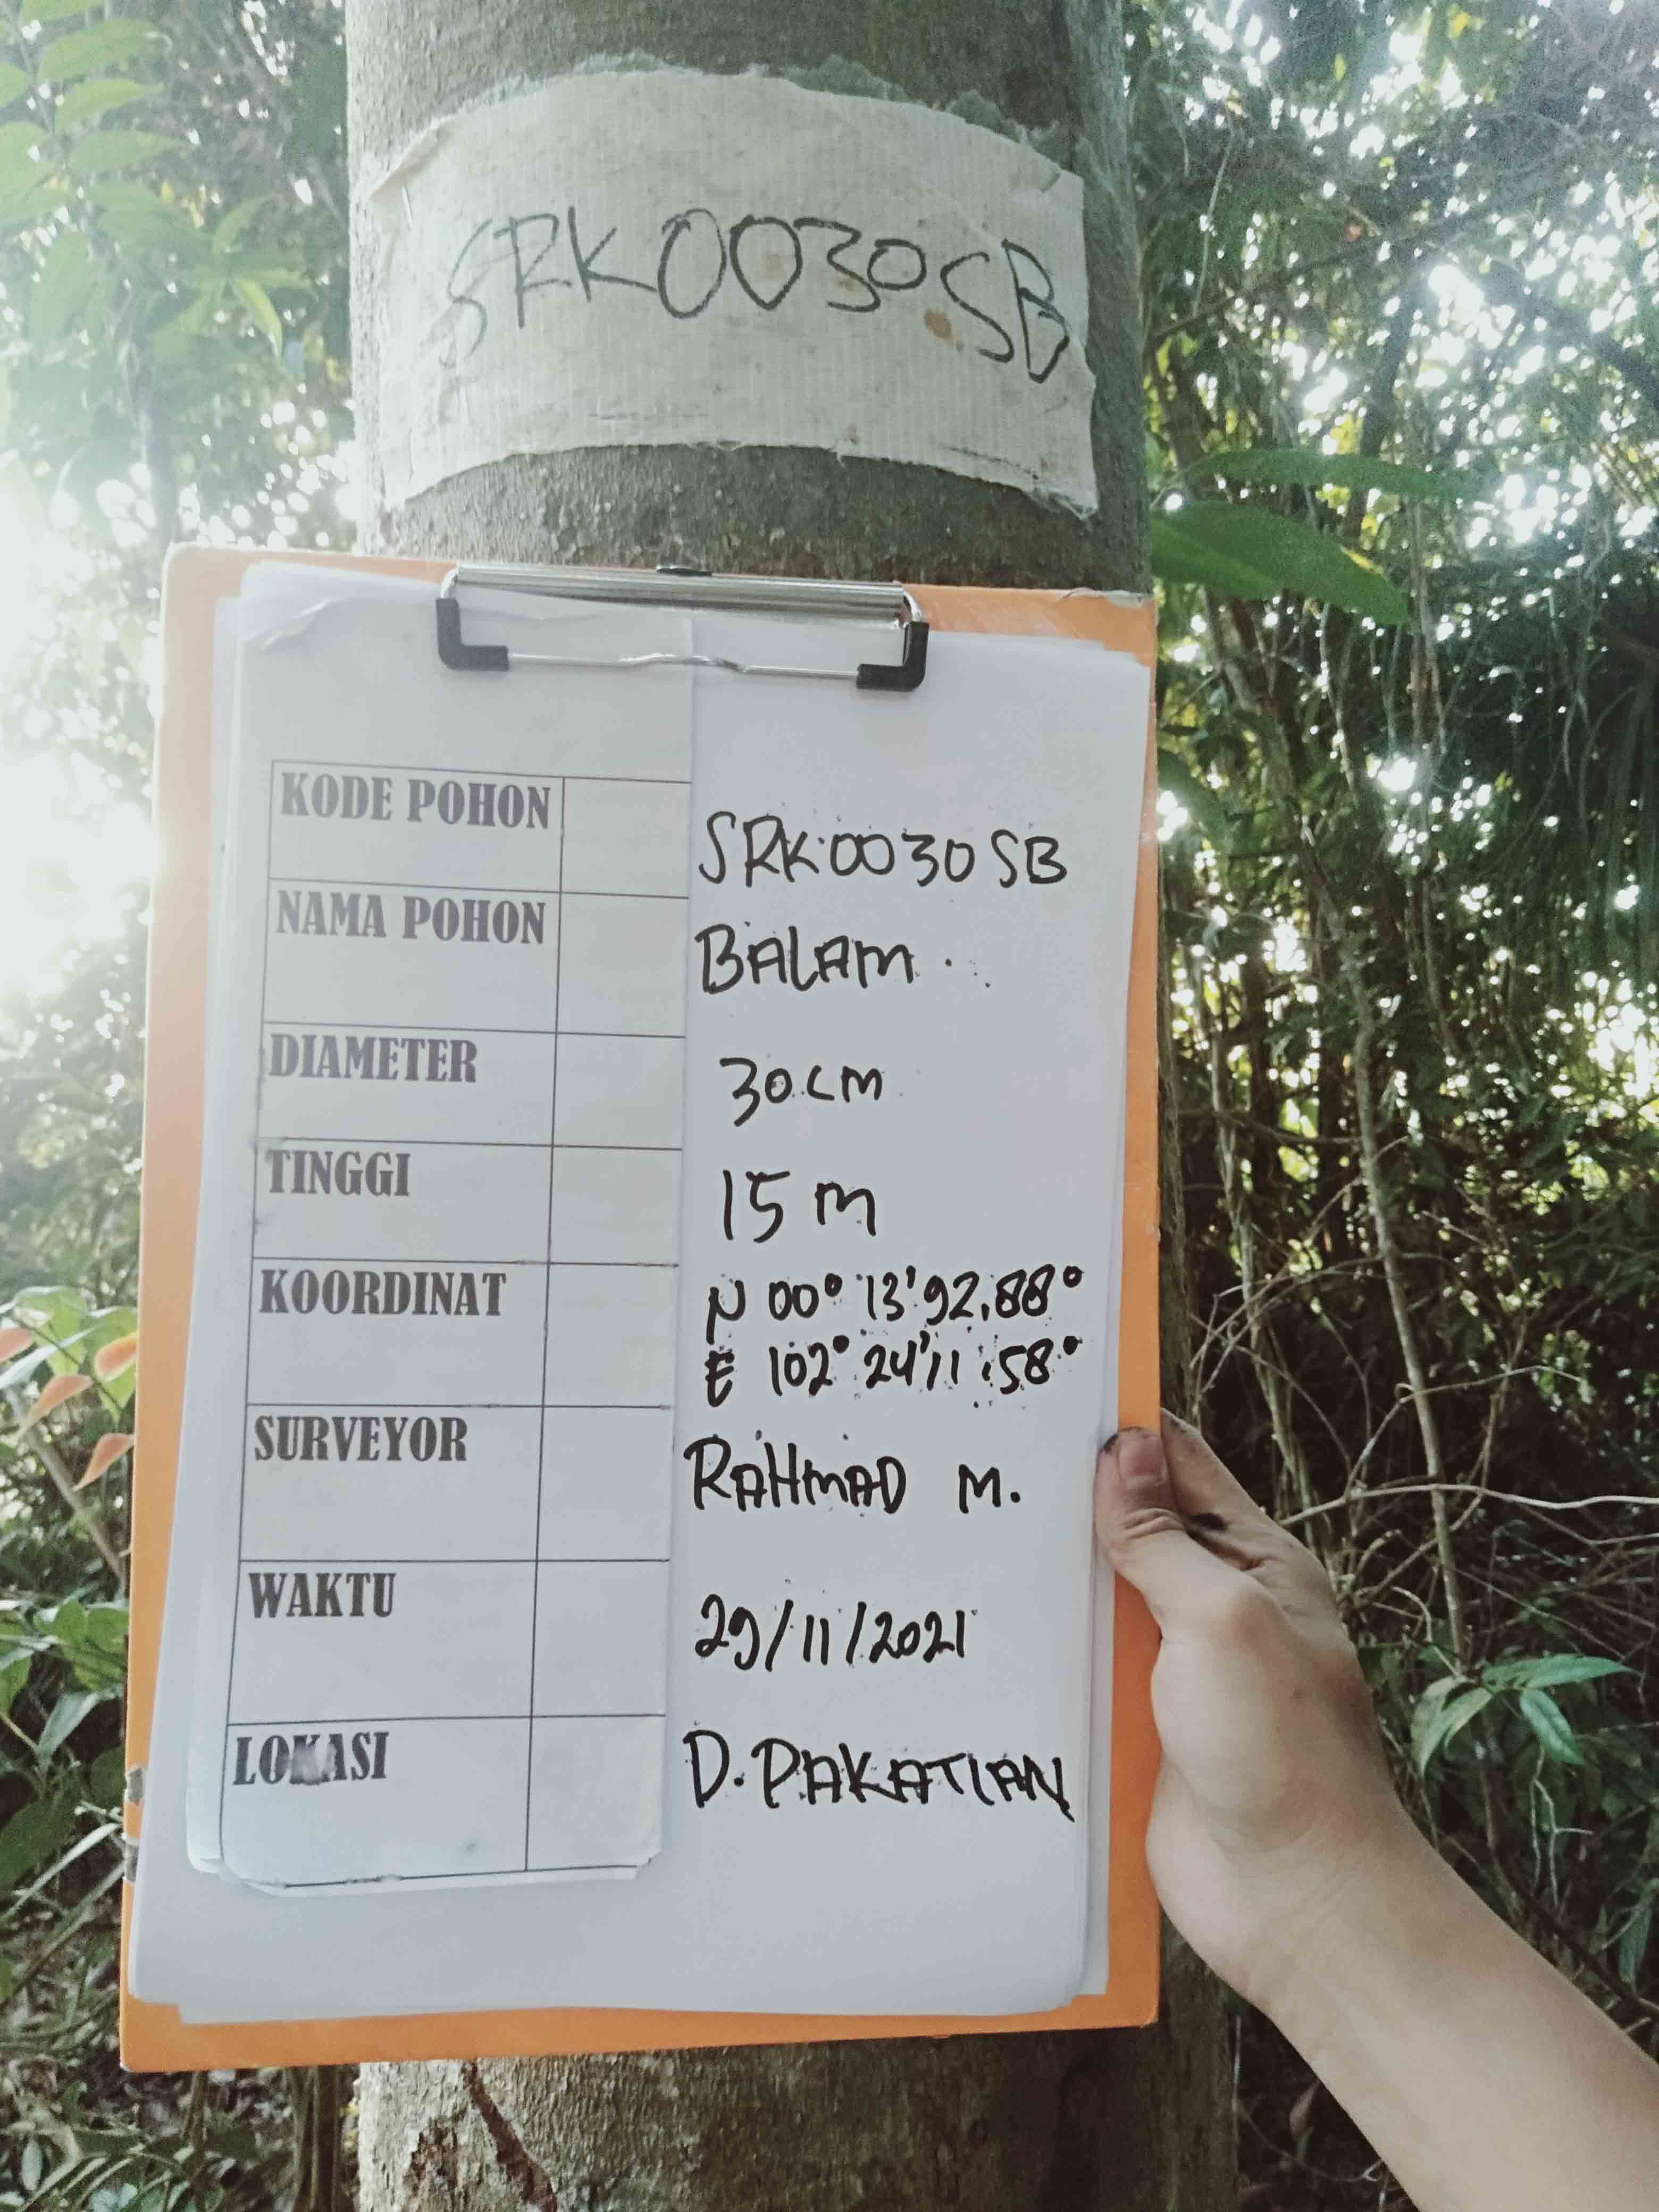 SRK0030SB
KODE POHON SRK0030SB
NAMA POHON BALAM
DIAMETER 30cm
TINGGI 15 m
KOORDINAT N 00° 13' 92,88°
E 102° 24' 11,58°
SURVEYOR RAHMAD M.
WAKTU 29/11/2021
LOKASI D. PAKATIAN